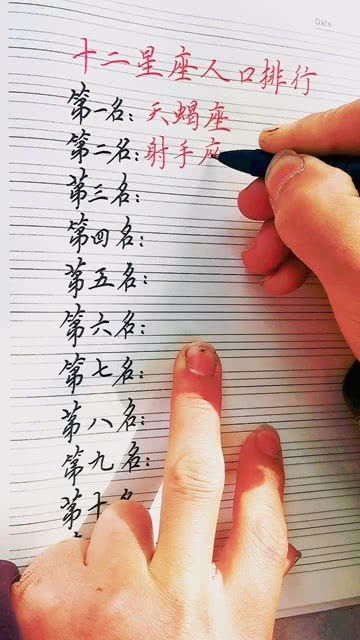 Date.
十二星座人口排行
第一名：天蝎座
第二名：射手座
第三名：
第四名：
第五名：
第六名：
第七名：
第八名：
第九名：
第十名